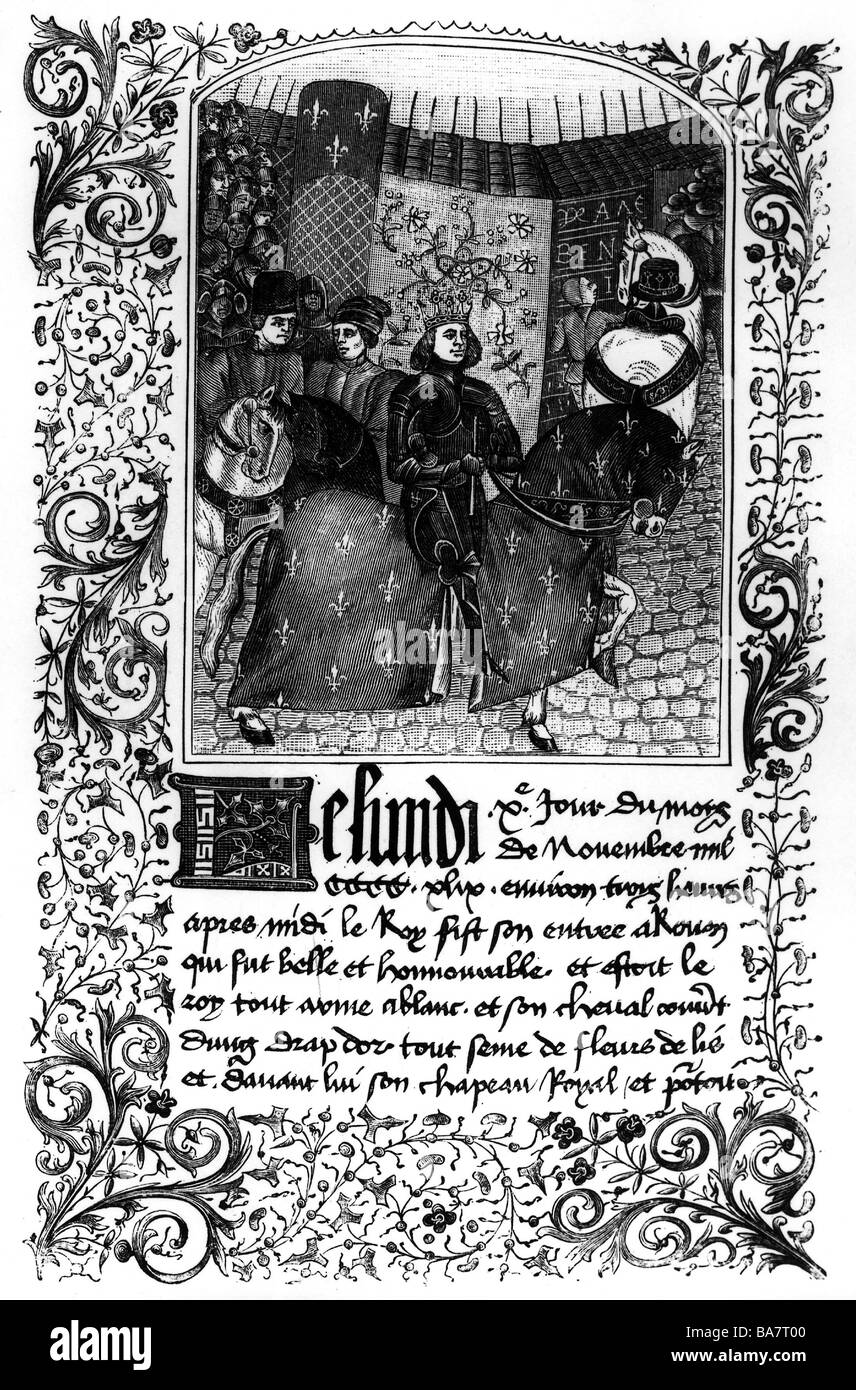 DE A A E
BA N
I
Le lundi · xe Jour du moys
de Nouembre mil
CCCC · xlix · enuiron troys heures
apres midi le Roy fist son entree a Rouen
qui fut belle et honnourable · et estoit le
roy tout arme a blanc · et son cheual couuert
dung drap dor · tout seme de fleurs de lis
et dauant lui son chapeau Royal / et portoit
alamy
Image ID: BA7T00
www.alamy.com